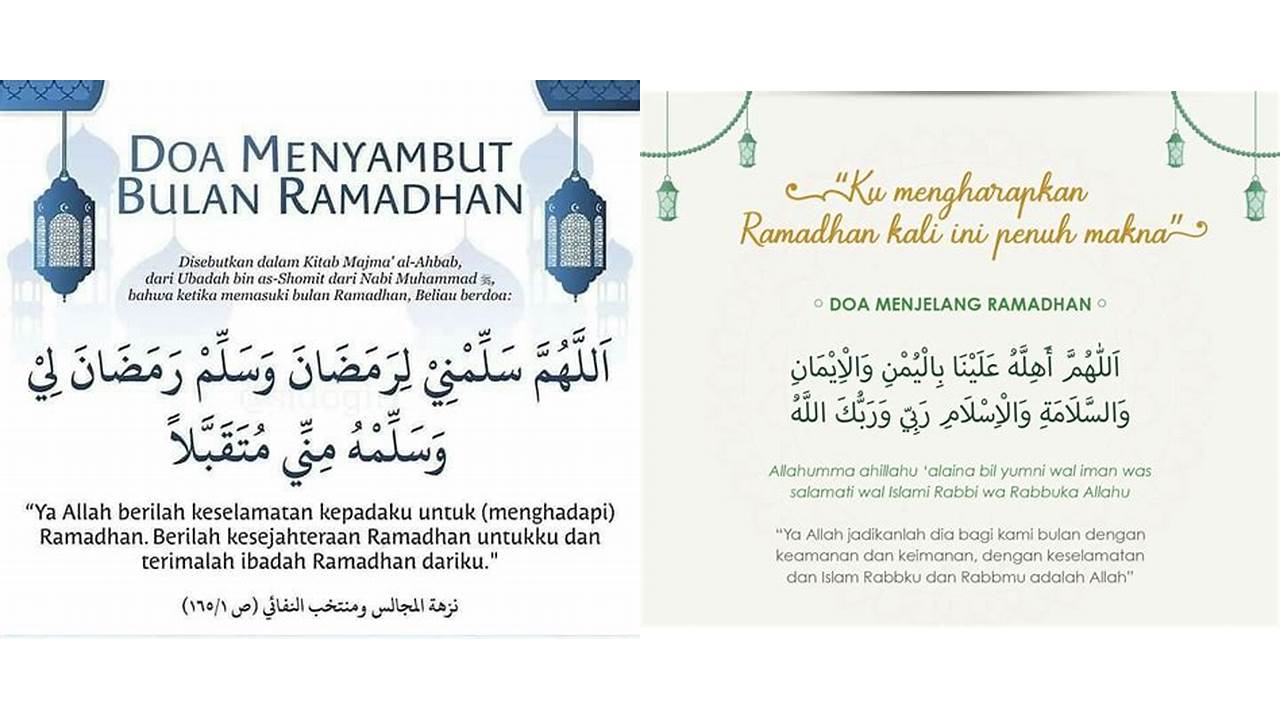 DOA MENYAMBUT
BULAN RAMADHAN
Disebutkan dalam Kitab Majma' al-Ahbab,
dari Ubadah bin as-Shomit dari Nabi Muhammad ﷺ,
bahwa ketika memasuki bulan Ramadhan, Beliau berdoa:
اَللَّهُمَّ سَلِّمْنِيْ لِرَمَضَانَ وَسَلِّمْ رَمَضَانَ لِيْ
وَسَلِّمْهُ مِنِّي مُتَقَبَّلاً
“Ya Allah berilah keselamatan kepadaku untuk (menghadapi)
Ramadhan. Berilah kesejahteraan Ramadhan untukku dan
terimalah ibadah Ramadhan dariku."
نزهة المجالس ومنتخب النفائي (ص ١٦٥/١)
“Ku mengharapkan
Ramadhan kali ini penuh makna”
DOA MENJELANG RAMADHAN
اَللّٰهُمَّ أَهِلَّهُ عَلَيْنَا بِالْيُمْنِ وَالْاِيْمَانِ
وَالسَّلَامَةِ وَالْاِسْلَامِ رَبِّيْ وَرَبُّكَ اللَّهُ
Allahumma ahillahu ‘alaina bil yumni wal iman was
salamati wal Islami Rabbi wa Rabbuka Allahu
“Ya Allah jadikanlah dia bagi kami bulan dengan
keamanan dan keimanan, dengan keselamatan
dan Islam Rabbku dan Rabbmu adalah Allah”